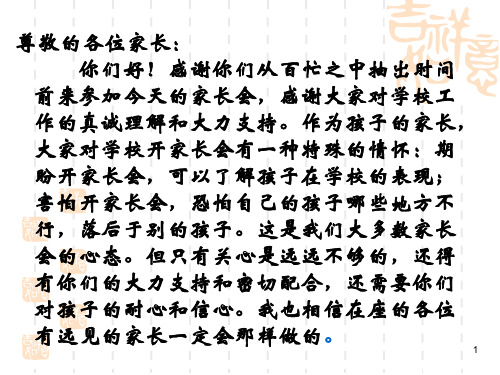 尊敬的各位家长：
你们好！感谢你们从百忙之中抽出时间
前来参加今天的家长会，感谢大家对学校工
作的真诚理解和大力支持。作为孩子的家长，
大家对学校开家长会有一种特殊的情怀：期
盼开家长会，可以了解孩子在学校的表现；
害怕开家长会，恐怕自己的孩子哪些地方不
行，落后于别的孩子。这是我们大多数家长
会的心态。但只有关心是远远不够的，还得
有你们的大力支持和密切配合，还需要你们
对孩子的耐心和信心。我也相信在座的各位
有远见的家长一定会那样做的。
1